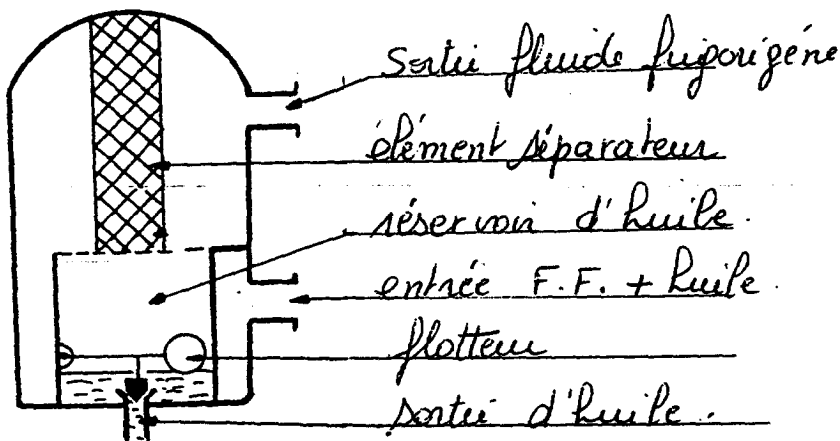 Sortie fluide frigorigéne
élément séparateur
réservoir d'huile.
entrée F.F. + huile
flotteur
sortie d'huile.